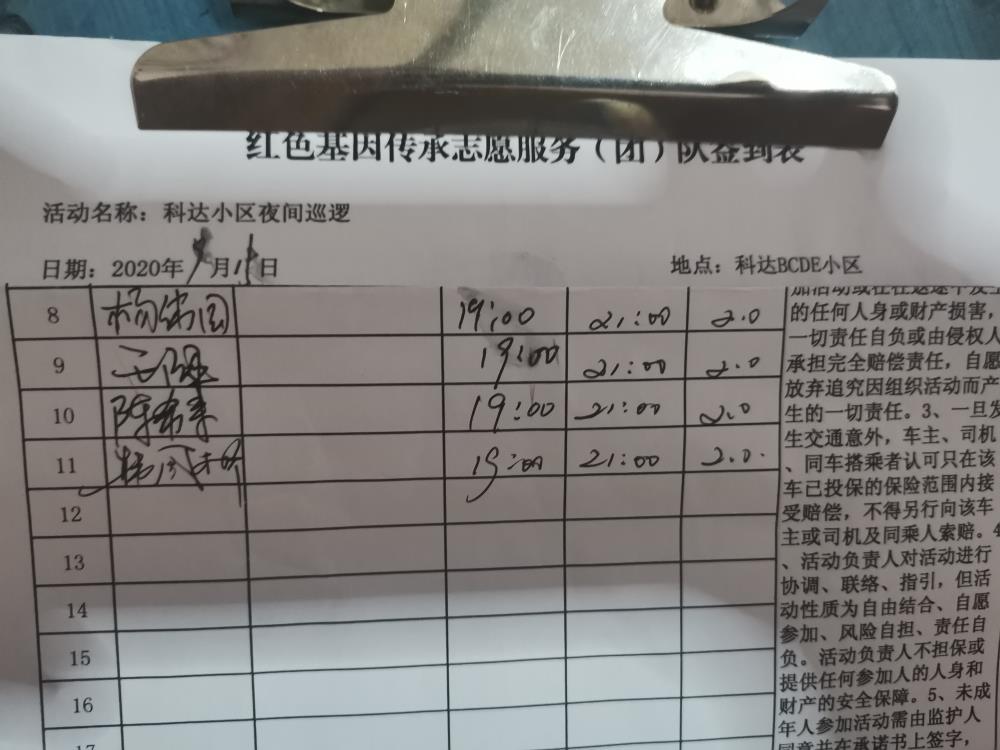 红色基因传承志愿服务（团）队签到表
活动名称：科达小区夜间巡逻
日期：2020年 月 日
地点：科达BCDE小区
8 19:00 21:00 2.0
9 19:00 21:00 2.0
10 陈 19:00 21:00 2.0
11 杨 19:00 21:00 2.0.
12
13
14
15
16
17
加活动或在往返途中发生
的任何人身或财产损害，
一切责任自负或由侵权人
承担完全赔偿责任，自愿
放弃追究因组织活动而产
生的一切责任。3、一旦发
生交通意外，车主、司机
、同车搭乘者认可只在该
车已投保的保险范围内接
受赔偿，不得另行向该车
主或司机及同乘人索赔。4
、活动负责人对活动进行
协调、联络、指引，但活
动性质为自由结合、自愿
参加、风险自担、责任自
负。活动负责人不担保或
提供任何参加人的人身和
财产的安全保障。5、未成
年人参加活动需由监护人
同意并在承诺书上签字，